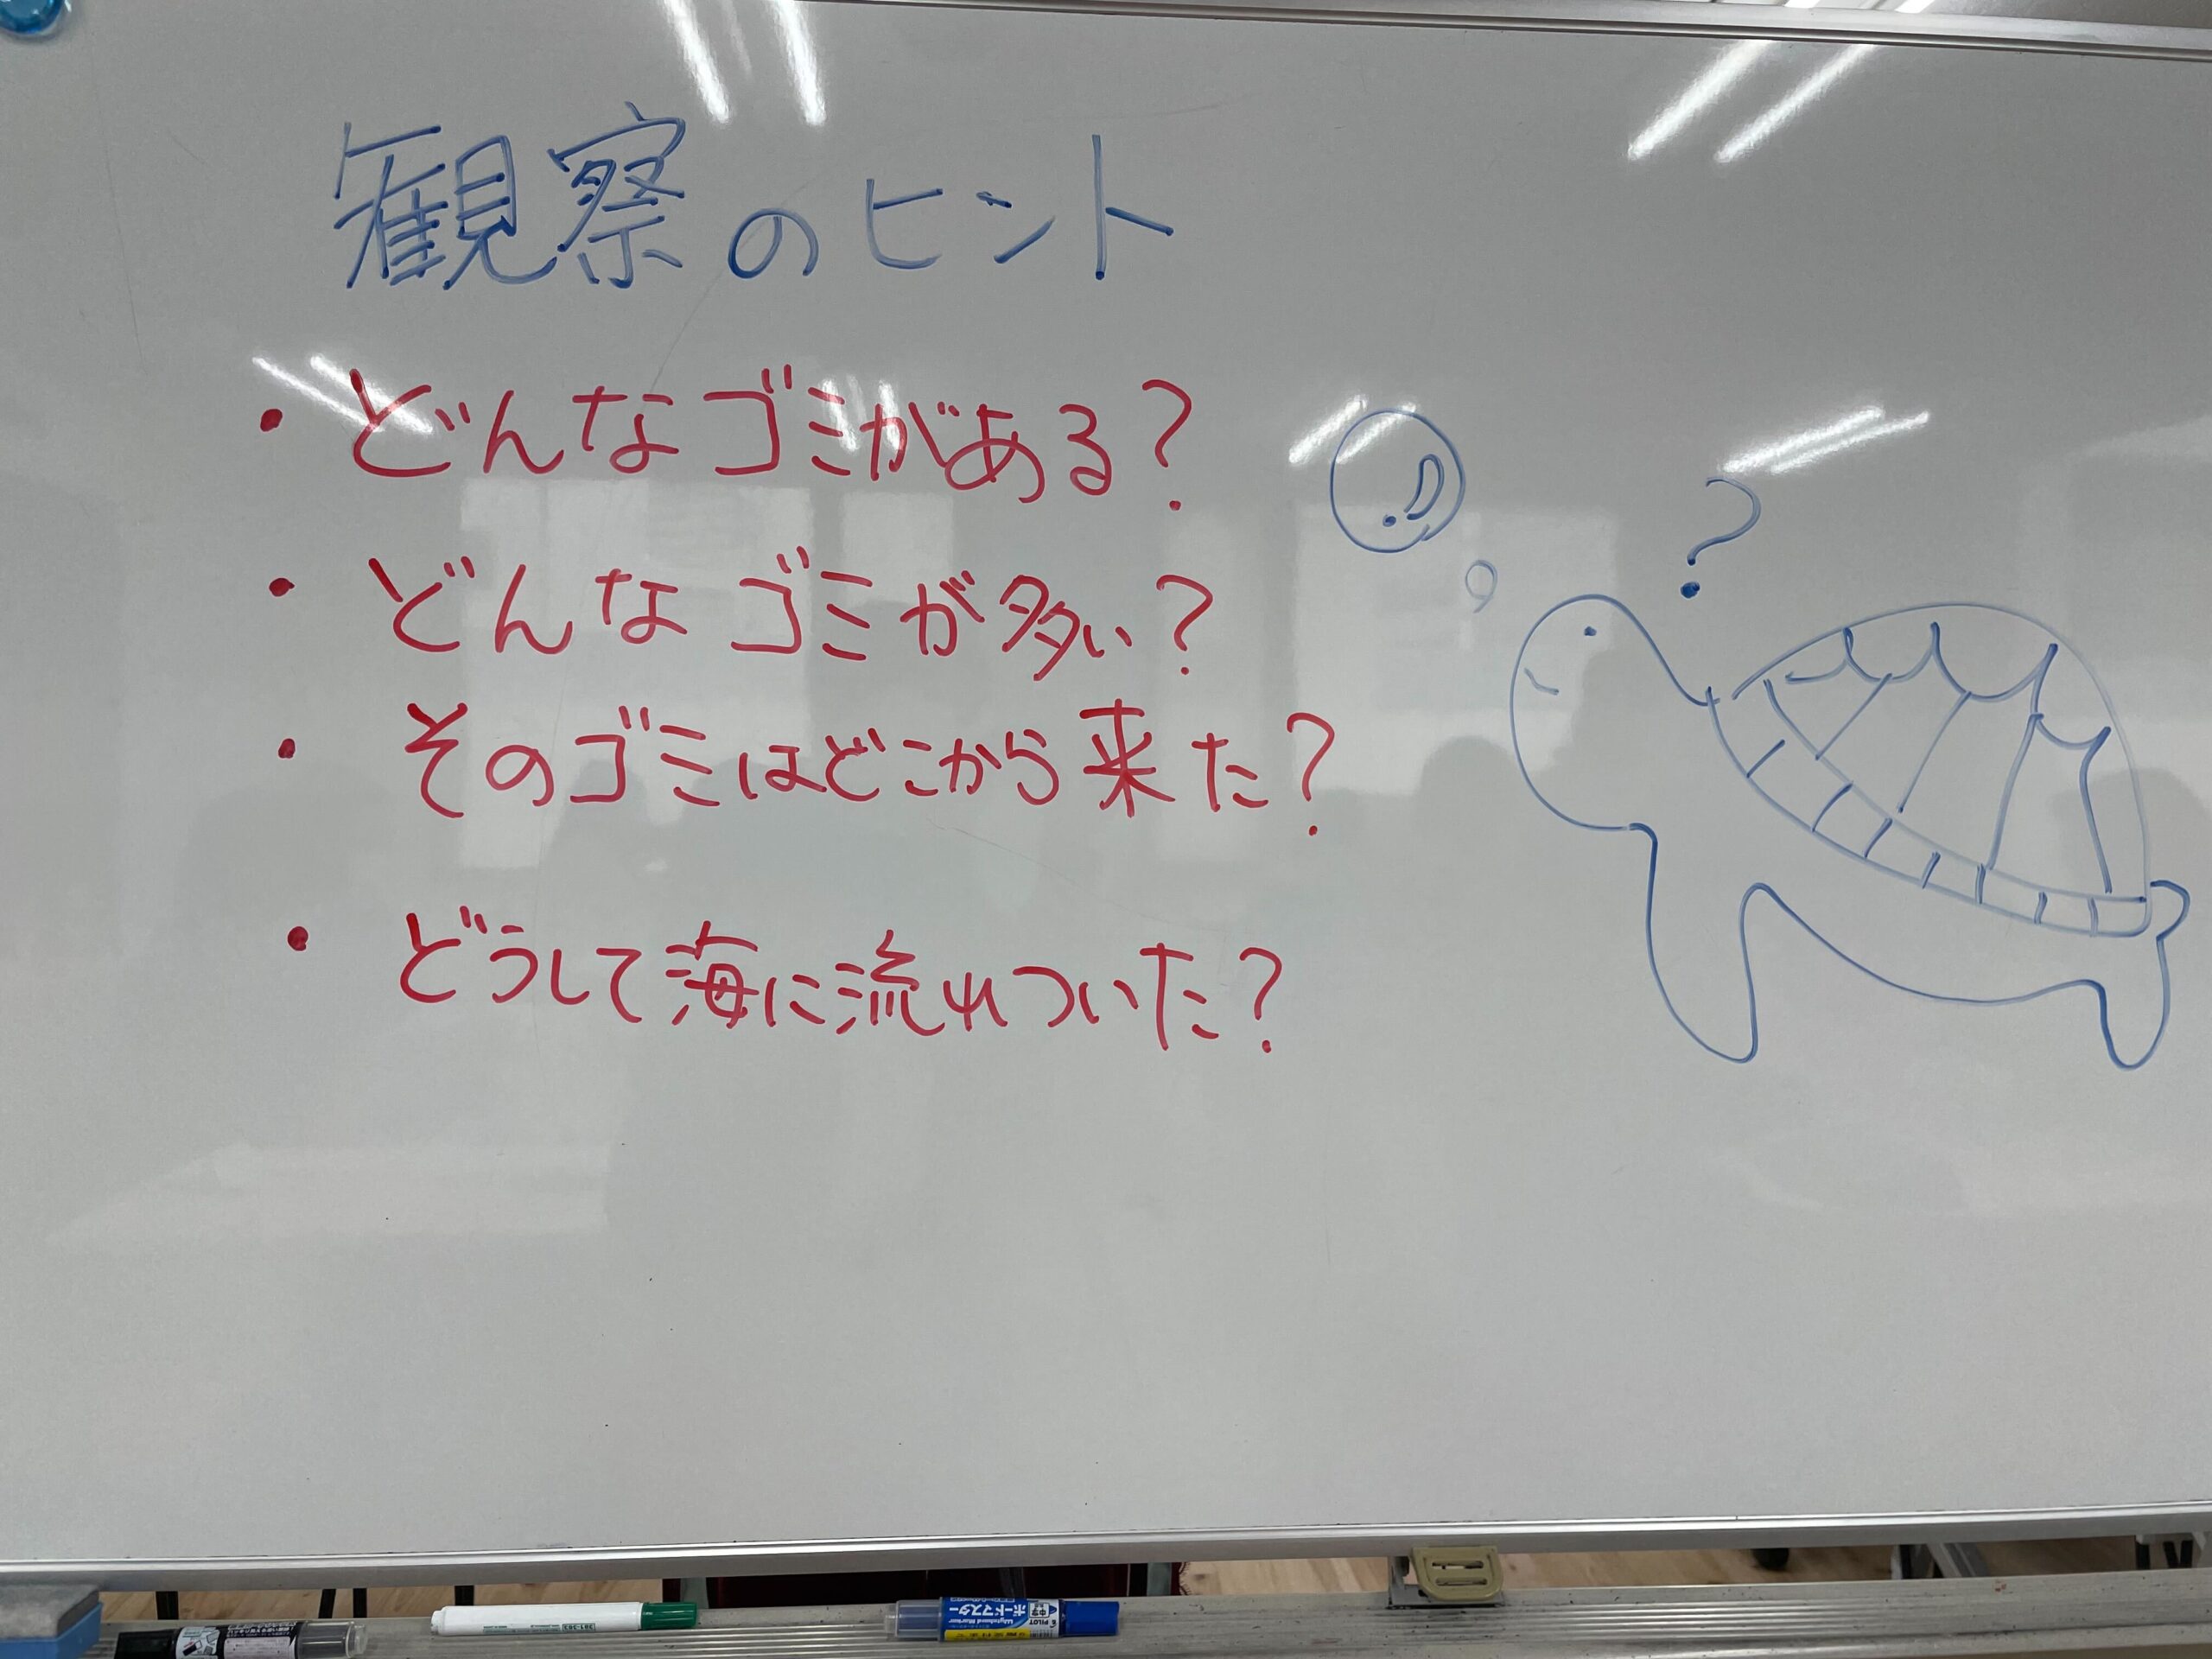 観察のヒント
・どんなゴミがある?
・どんなゴミが多い?
・そのゴミはどこから来た?
・どうして海に流れついた?
?
ボードマスター
PILOT